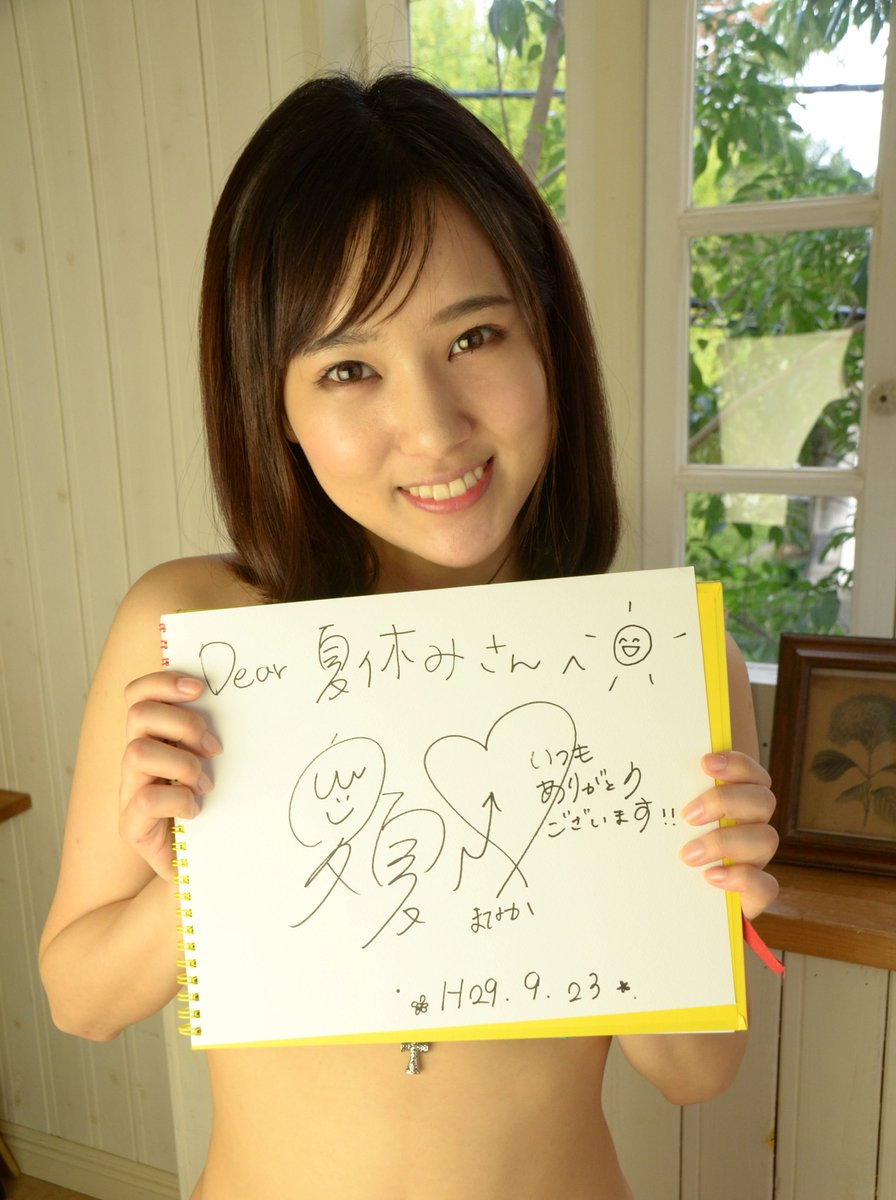 Dear 夏休みさんへ
いつも
ありがとう
ございます!!
H29.9.23